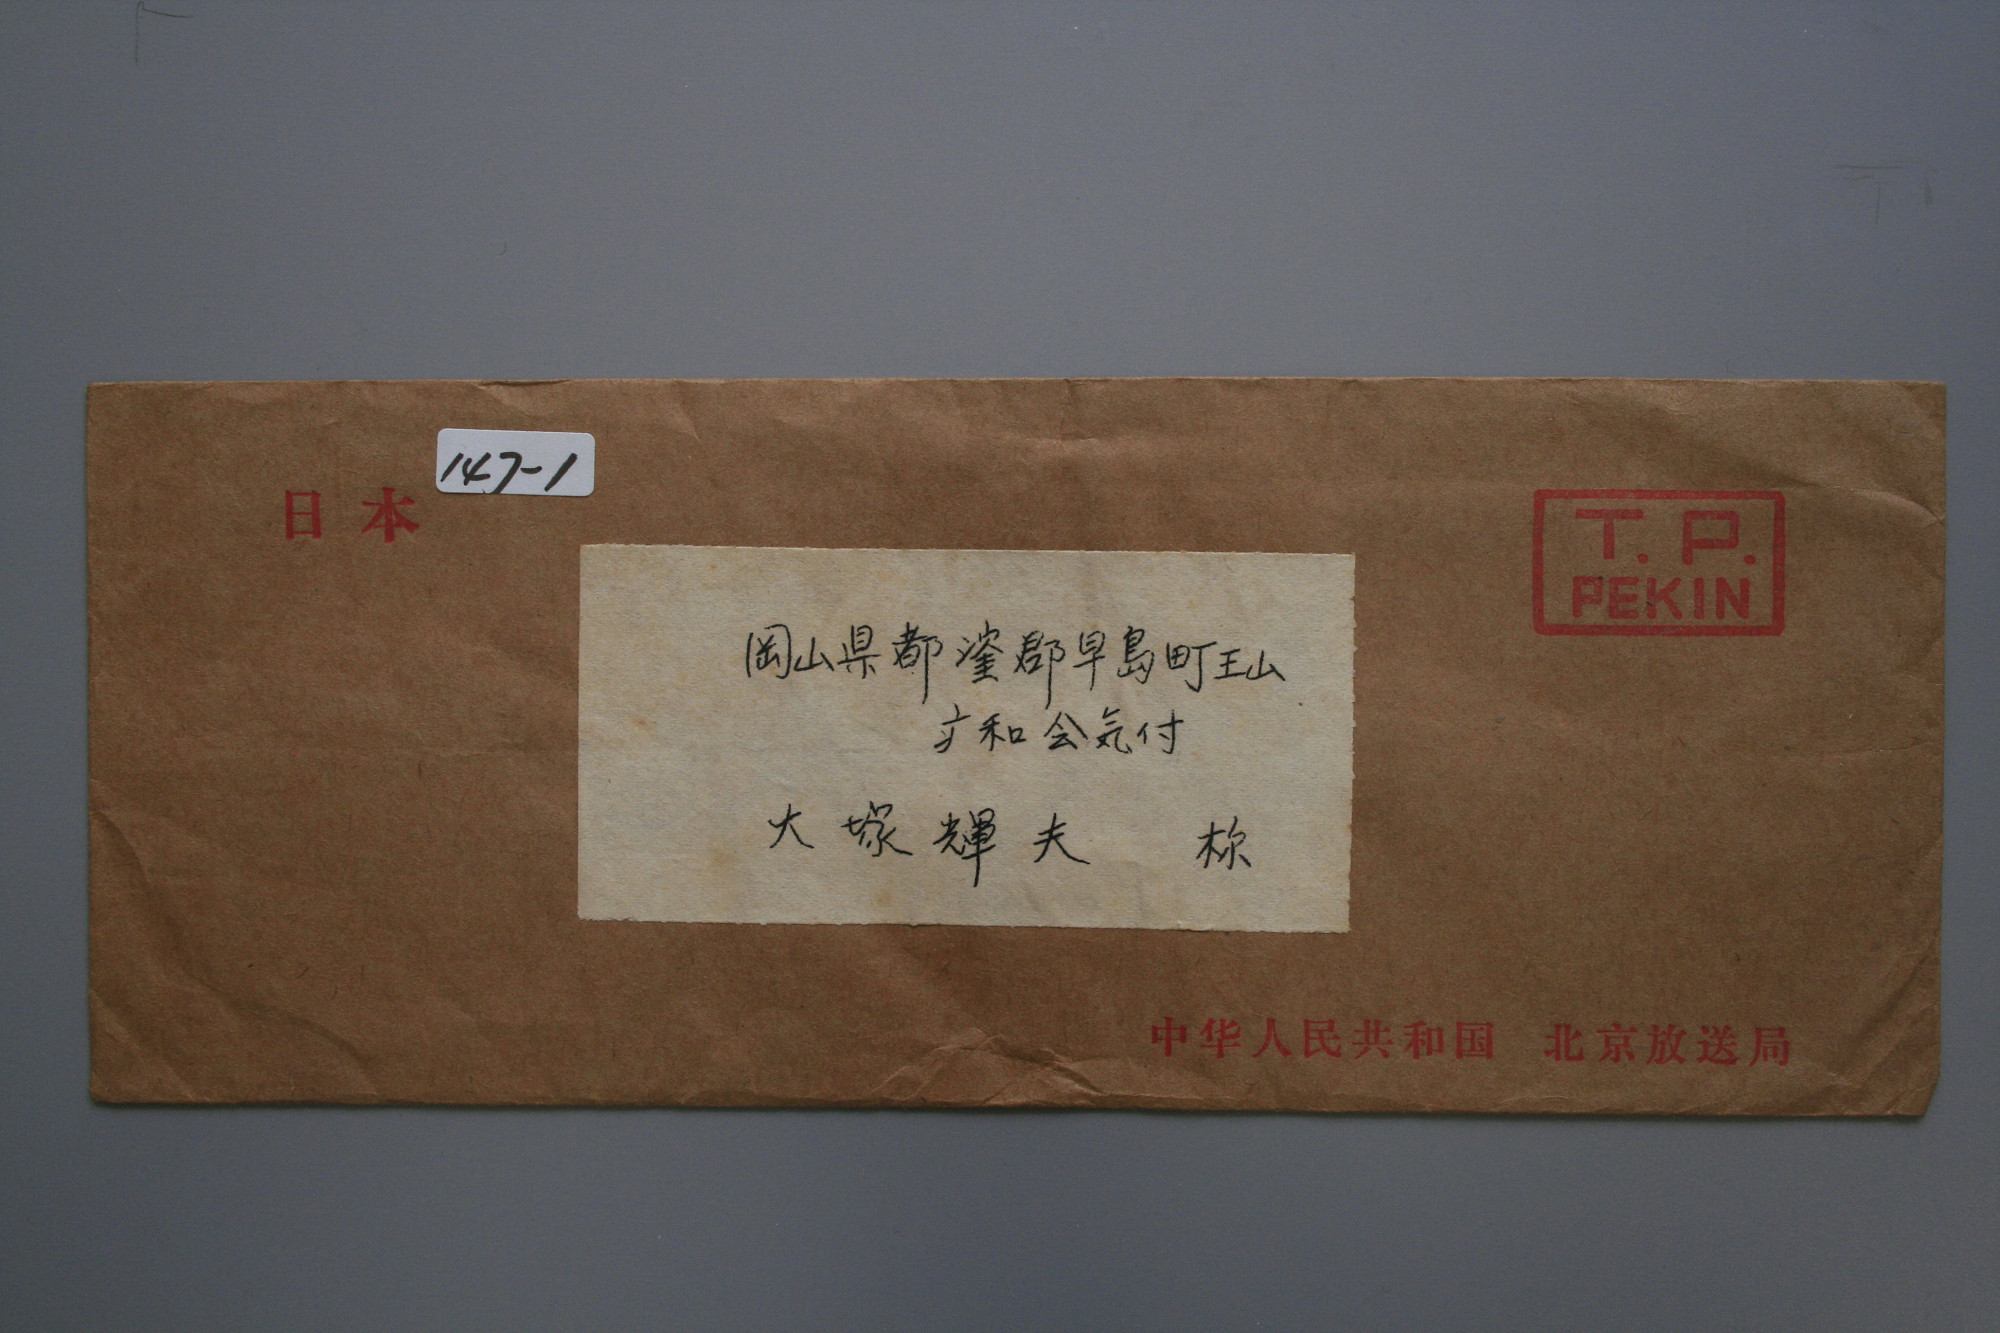 147-1
日本
T.P.
PEKIN
岡山県都窪郡早島町王山
和会気付
大塚輝夫 様
中华人民共和国 北京放送局